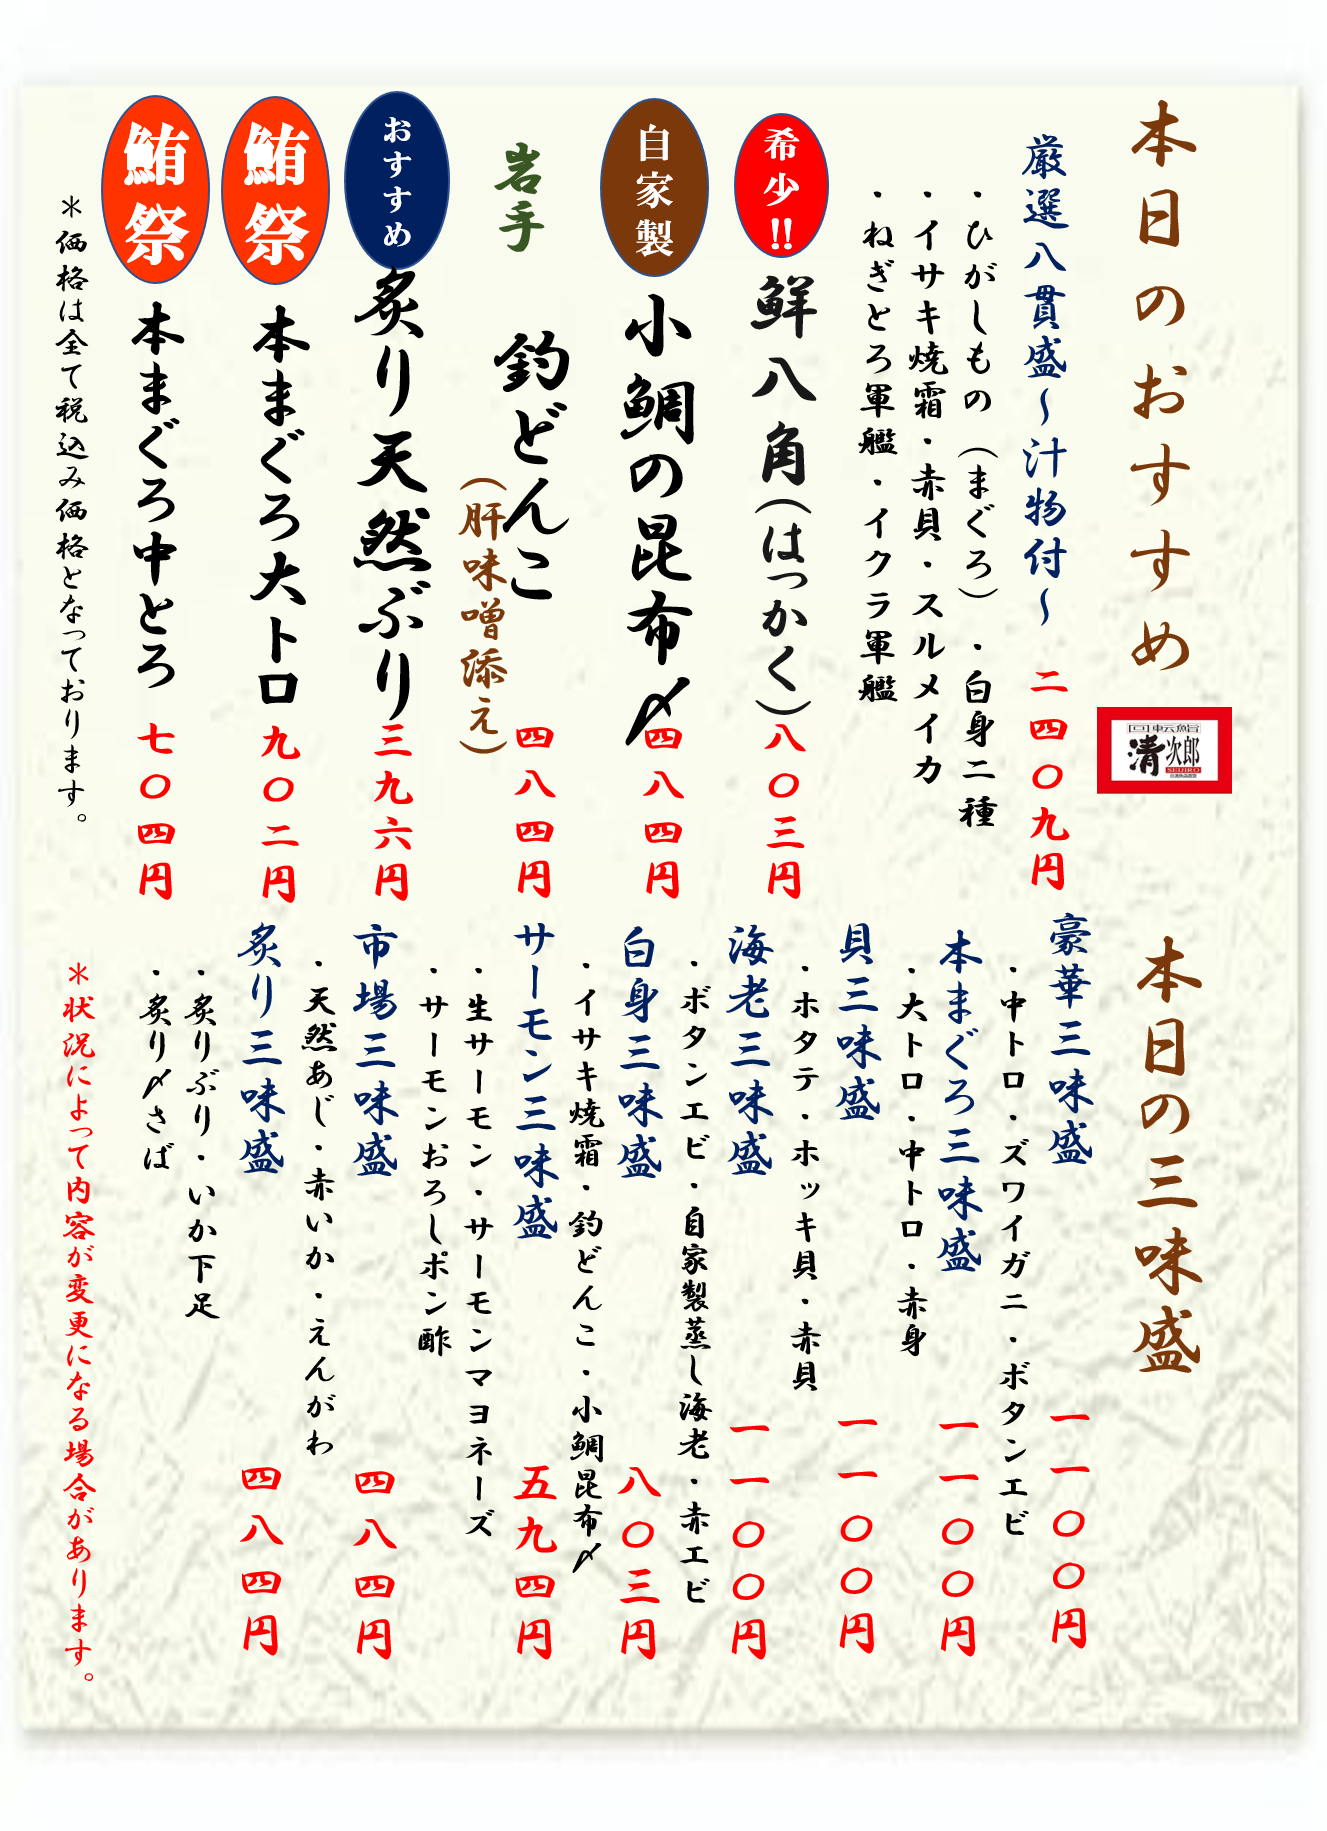 本日のおすすめ
厳選八貫盛～汁物付～ 二四〇九円
・ひがしもの（まぐろ）・白身二種
・イサキ焼霜・赤貝・スルメイカ
・ねぎとろ軍艦・イクラ軍艦
希少!! 鮮八角(はっかく) 八〇三円
自家製 小鯛の昆布〆 四八四円
岩手 釣どんこ 四八四円
（肝味噌添え）
おすすめ 炙り天然ぶり 三九六円
鮪祭 本まぐろ大トロ 九〇二円
鮪祭 本まぐろ中とろ 七〇四円
＊価格は全て税込み価格となっております。
清次郎
SEIJIRO
本日の三味盛
豪華三味盛 一一〇〇円
・中トロ・ズワイガニ・ボタンエビ
本まぐろ三味盛 一一〇〇円
・大トロ・中トロ・赤身
貝三味盛 一一〇〇円
・ホタテ・ホッキ貝・赤貝
海老三味盛 一一〇〇円
・ボタンエビ・自家製蒸し海老・赤エビ
白身三味盛 八〇三円
・イサキ焼霜・釣どんこ・小鯛昆布〆
サーモン三味盛 五九四円
・生サーモン・サーモンマヨネーズ
・サーモンおろしポン酢
市場三味盛 四八四円
・天然あじ・赤いか・えんがわ
炙り三味盛 四八四円
・炙りぶり・いか下足
・炙り〆さば
＊状況によって内容が変更になる場合があります。